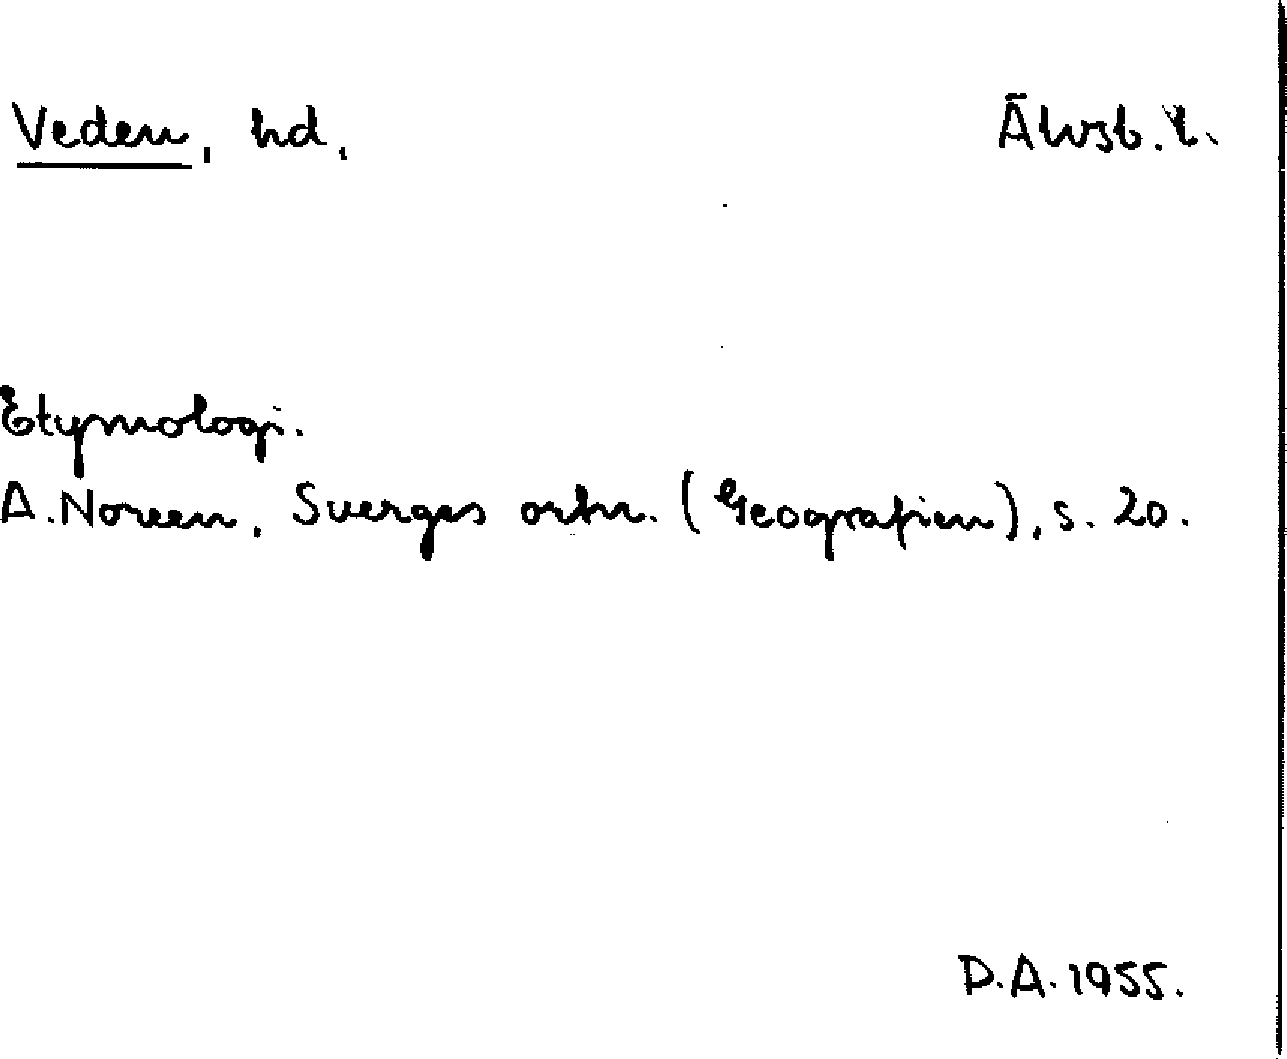 Veden, hd, Älvsb. l.
Etymologi.
A. Noreen, Sverges ortn. (Geografien), s. 20.
D.A. 1955.